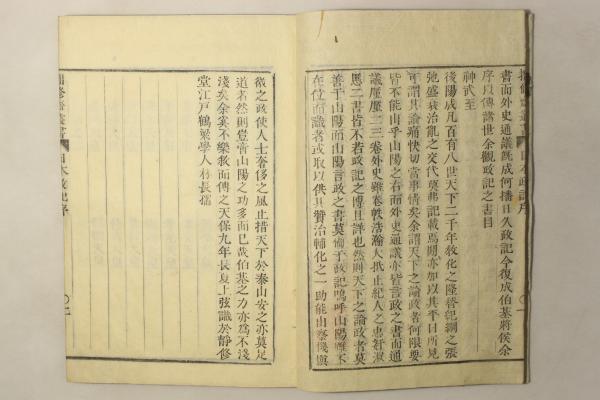 書而外史通議旣成何播日久政記今復成伯基將俟余
序以傳諸世余觀政記之書目
神武至
後陽成凡百有八世天下二千年敎化之隆替紀綱之張
弛盛衰治亂之交代莫弗記載焉間亦加以其平日所見
可謂其論痛快切當事情矣余謂天下之論政者何限要
皆不能出乎山陽之右而外史通議亦皆言政之書而通
議厪厪二三卷外史雖卷帙浩瀚大抵止紀人之忠奸淑
慝二書皆不若政記之博且詳也然則天下之論政者莫
善于山陽而山陽言政之書莫備于政記嗚呼山陽雖不
在位而識者或取以供其贊治輔化之一助能由察機與
微之政使人士奢侈之風止措天下於泰山安之亦莫足
道者然則豈啻山陽之功多而已哉伯基之力亦爲不淺
淺矣余寔不樂救而傳之天保九年長夏上弦識於靜修
堂江戶鶴梁學人林長孺
日本政記序